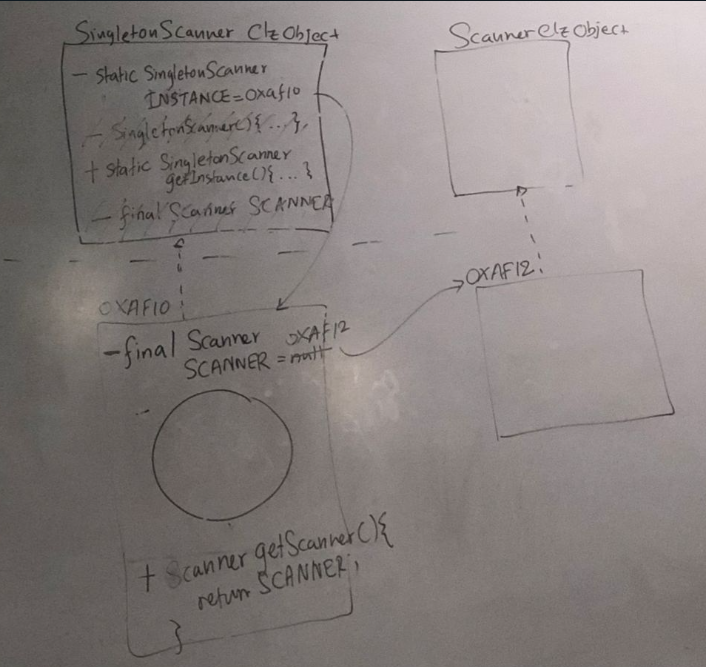 SingletonScanner ClzObject
- static SingletonScanner
INSTANCE=0xaf10
- SingletonScanner(){...}
+ static SingletonScanner
getInstance(){...}
- final Scanner SCANNER
ScannerClzObject
0XAF10
- final Scanner 0XAF12
SCANNER = null
0XAF12
+ Scanner getScanner(){
return SCANNER;
}